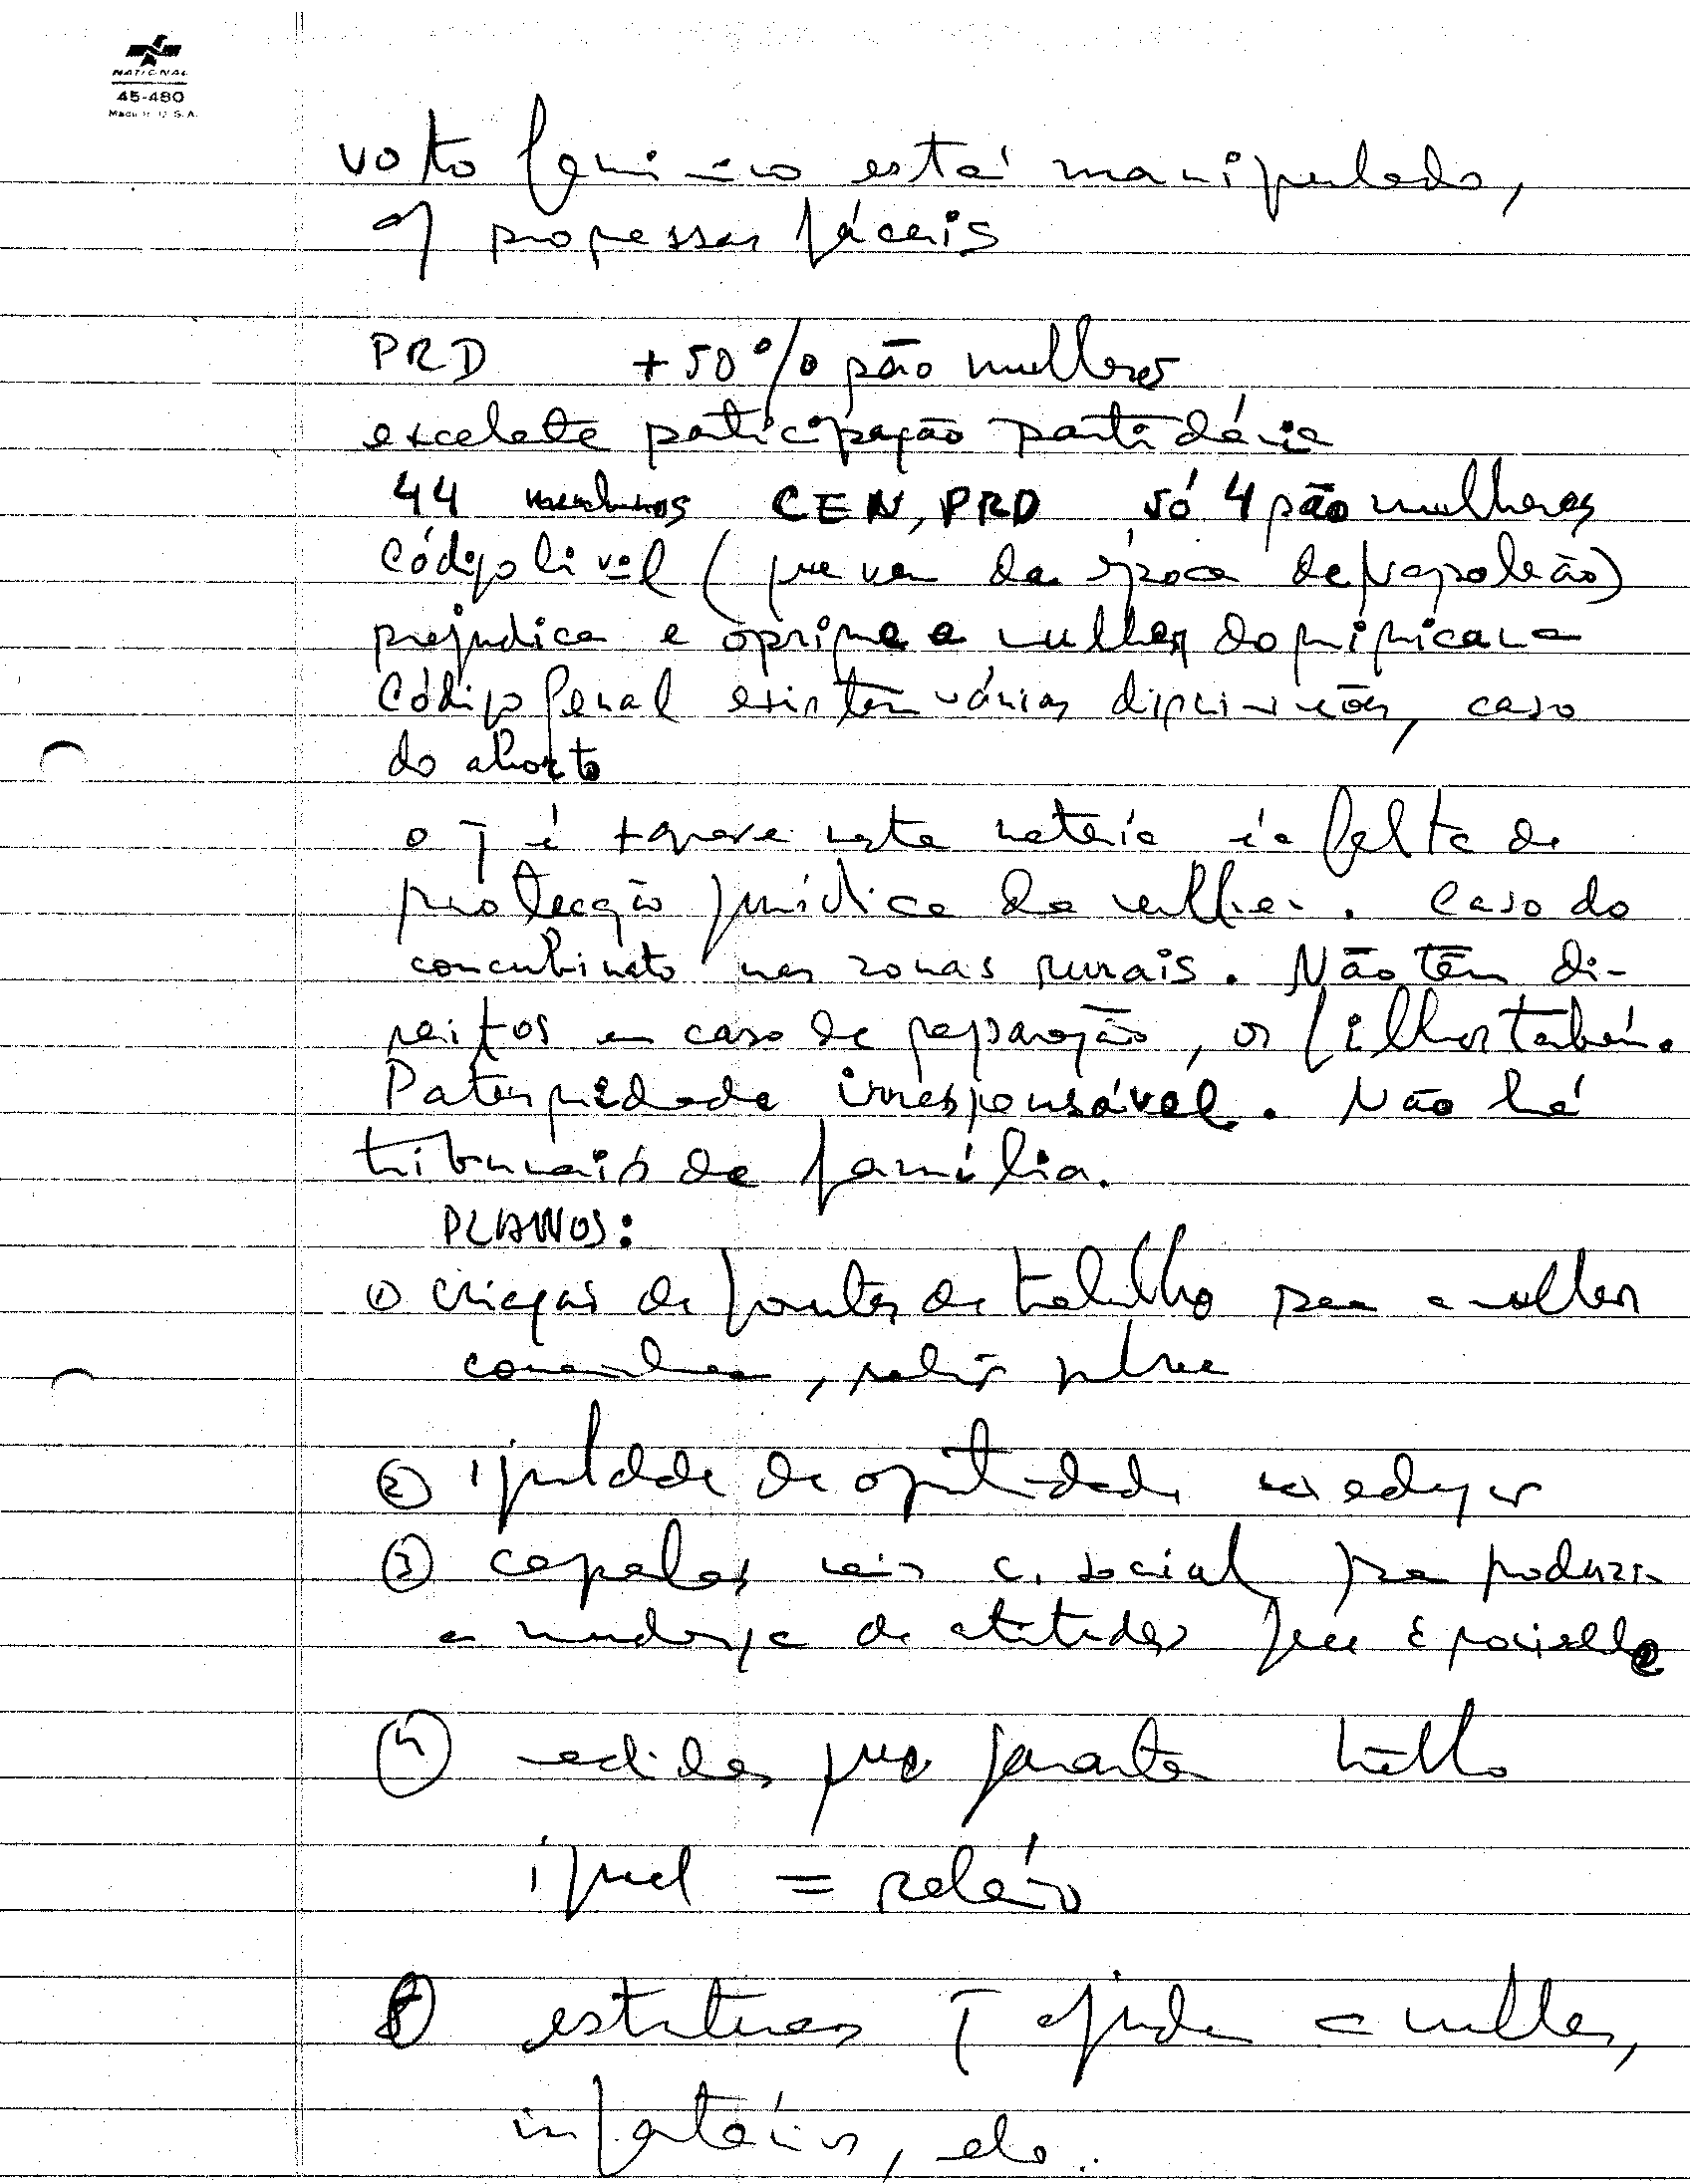 NATIONAL
45-480
Made in U.S.A.
voto feminino está manipulado,
c/ promessas fáceis
PRD +50% são mulheres
excelente participação partidária
44 membros CEN, PRD só 4 são mulheres
Código Civil (que vem da época de Napoleão)
prejudica e oprime a mulher dominicana
Código Penal existem várias discriminações, caso
do aborto
o q̄ é + grave nesta matéria é a falta de
protecção jurídica da mulher. Caso do
concubinato nas zonas rurais. Não têm di-
reitos em caso de separação, os filhos também.
Paternidade irresponsável. Não há
tribunais de família.
PLANOS:
① criação de fontes de trabalho para a mulher
② igualdade de oportunidades na educação
③ campanhas meios c. social para produzir
a mudança de atitudes
④ medidas para garantir trabalho
igual = salário
⑤ estruturas q̄ ajudem a mulher,
infantários, etc.